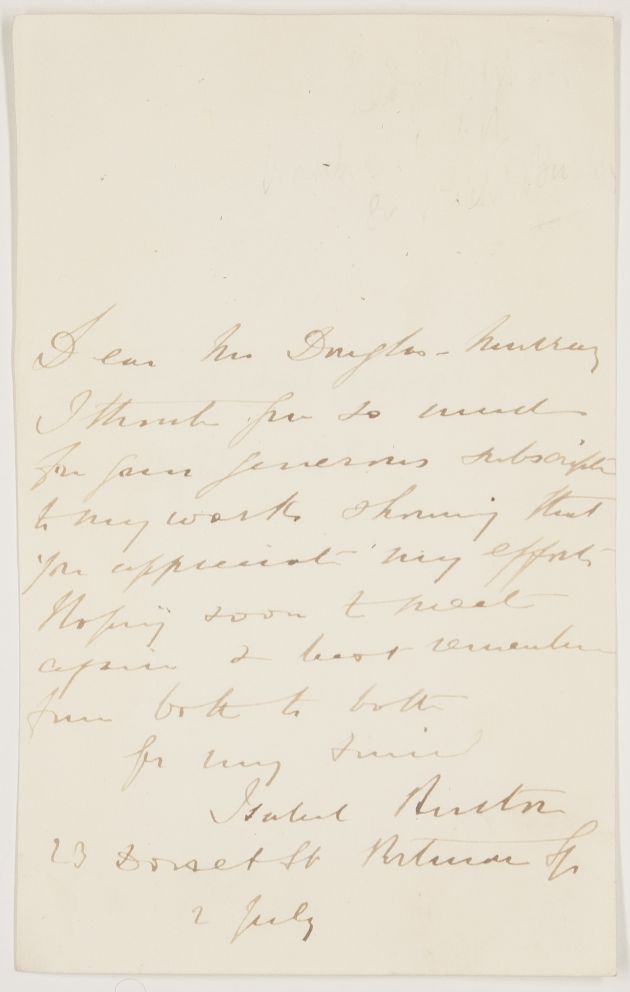 Dear Mr Douglas-Murray
I thank you so much
for your generous subscription
to my works showing that
you appreciate my efforts
Hoping soon to meet
again & best remembrances
from both to both
yrs very sincerely
Isabel Burton
23 Dorset St Portman Sq
2 July